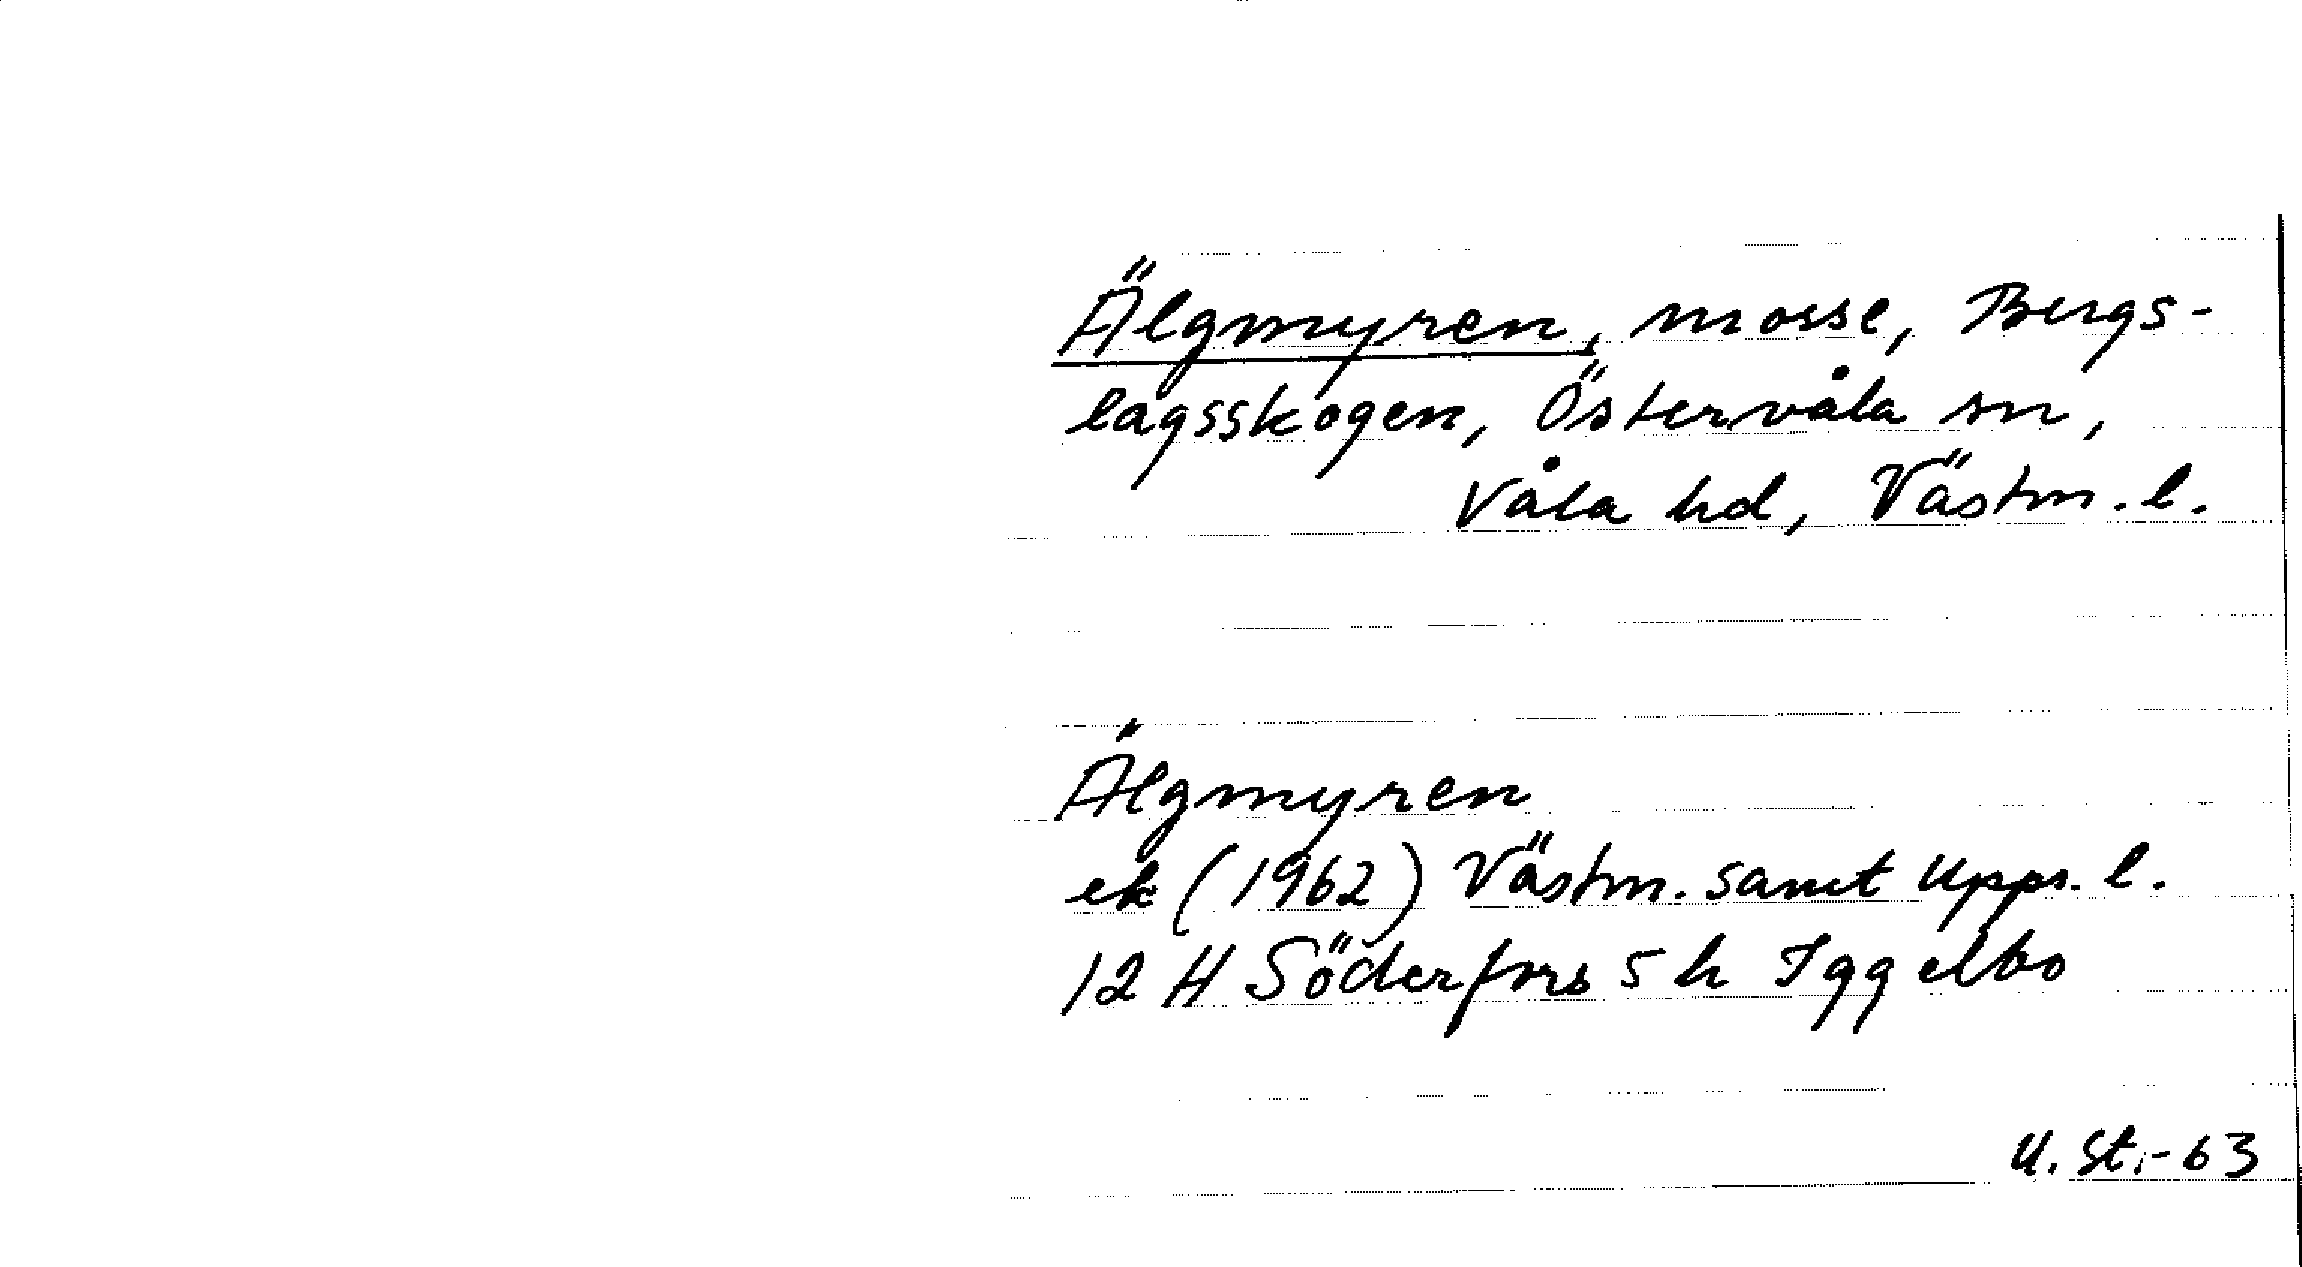 Älgmyren, mosse, Bergs-
lagsskogen, Östervåla sn,
Våla hd, Västm. l.
Älgmyren
ek (1962) Västm. samt Upps. l.
12 H Söderfors 5 h Iggelbo
U. St. -63